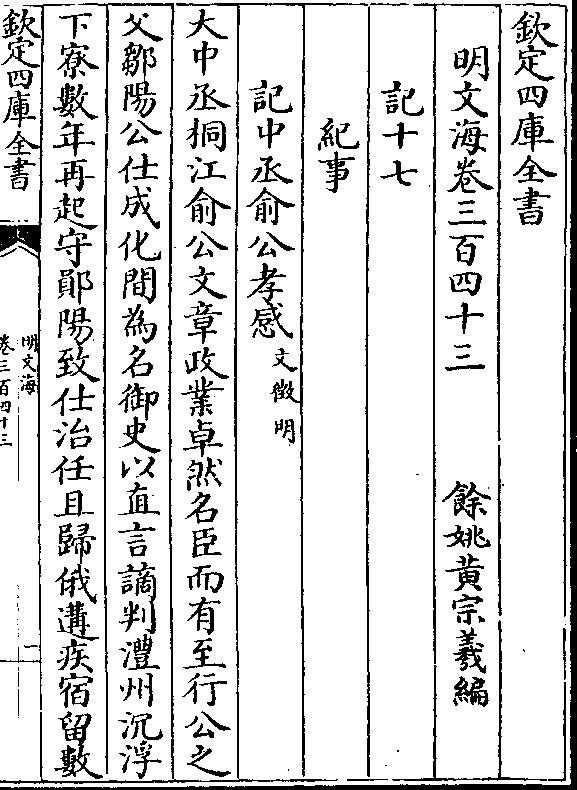 欽定四庫全書
明文海卷三百四十三
餘姚黃宗羲編
記十七
紀事
記中丞俞公孝感文徵明
大中丞桐江俞公文章政業卓然名臣而有至行公之
父鄒陽公仕成化間為名御史以直言謫判澧州沉浮
下寮數年再起守鄖陽致仕治任且歸俄遘疾宿留數
欽定四庫全書
明文海
卷三百四十三
一